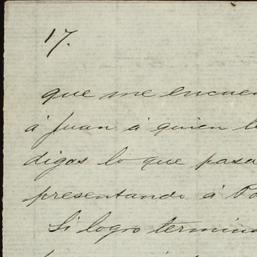 17.
que me encuen
á Juan á quien le
digas lo que pasa
presentando á Po
Si logro termina